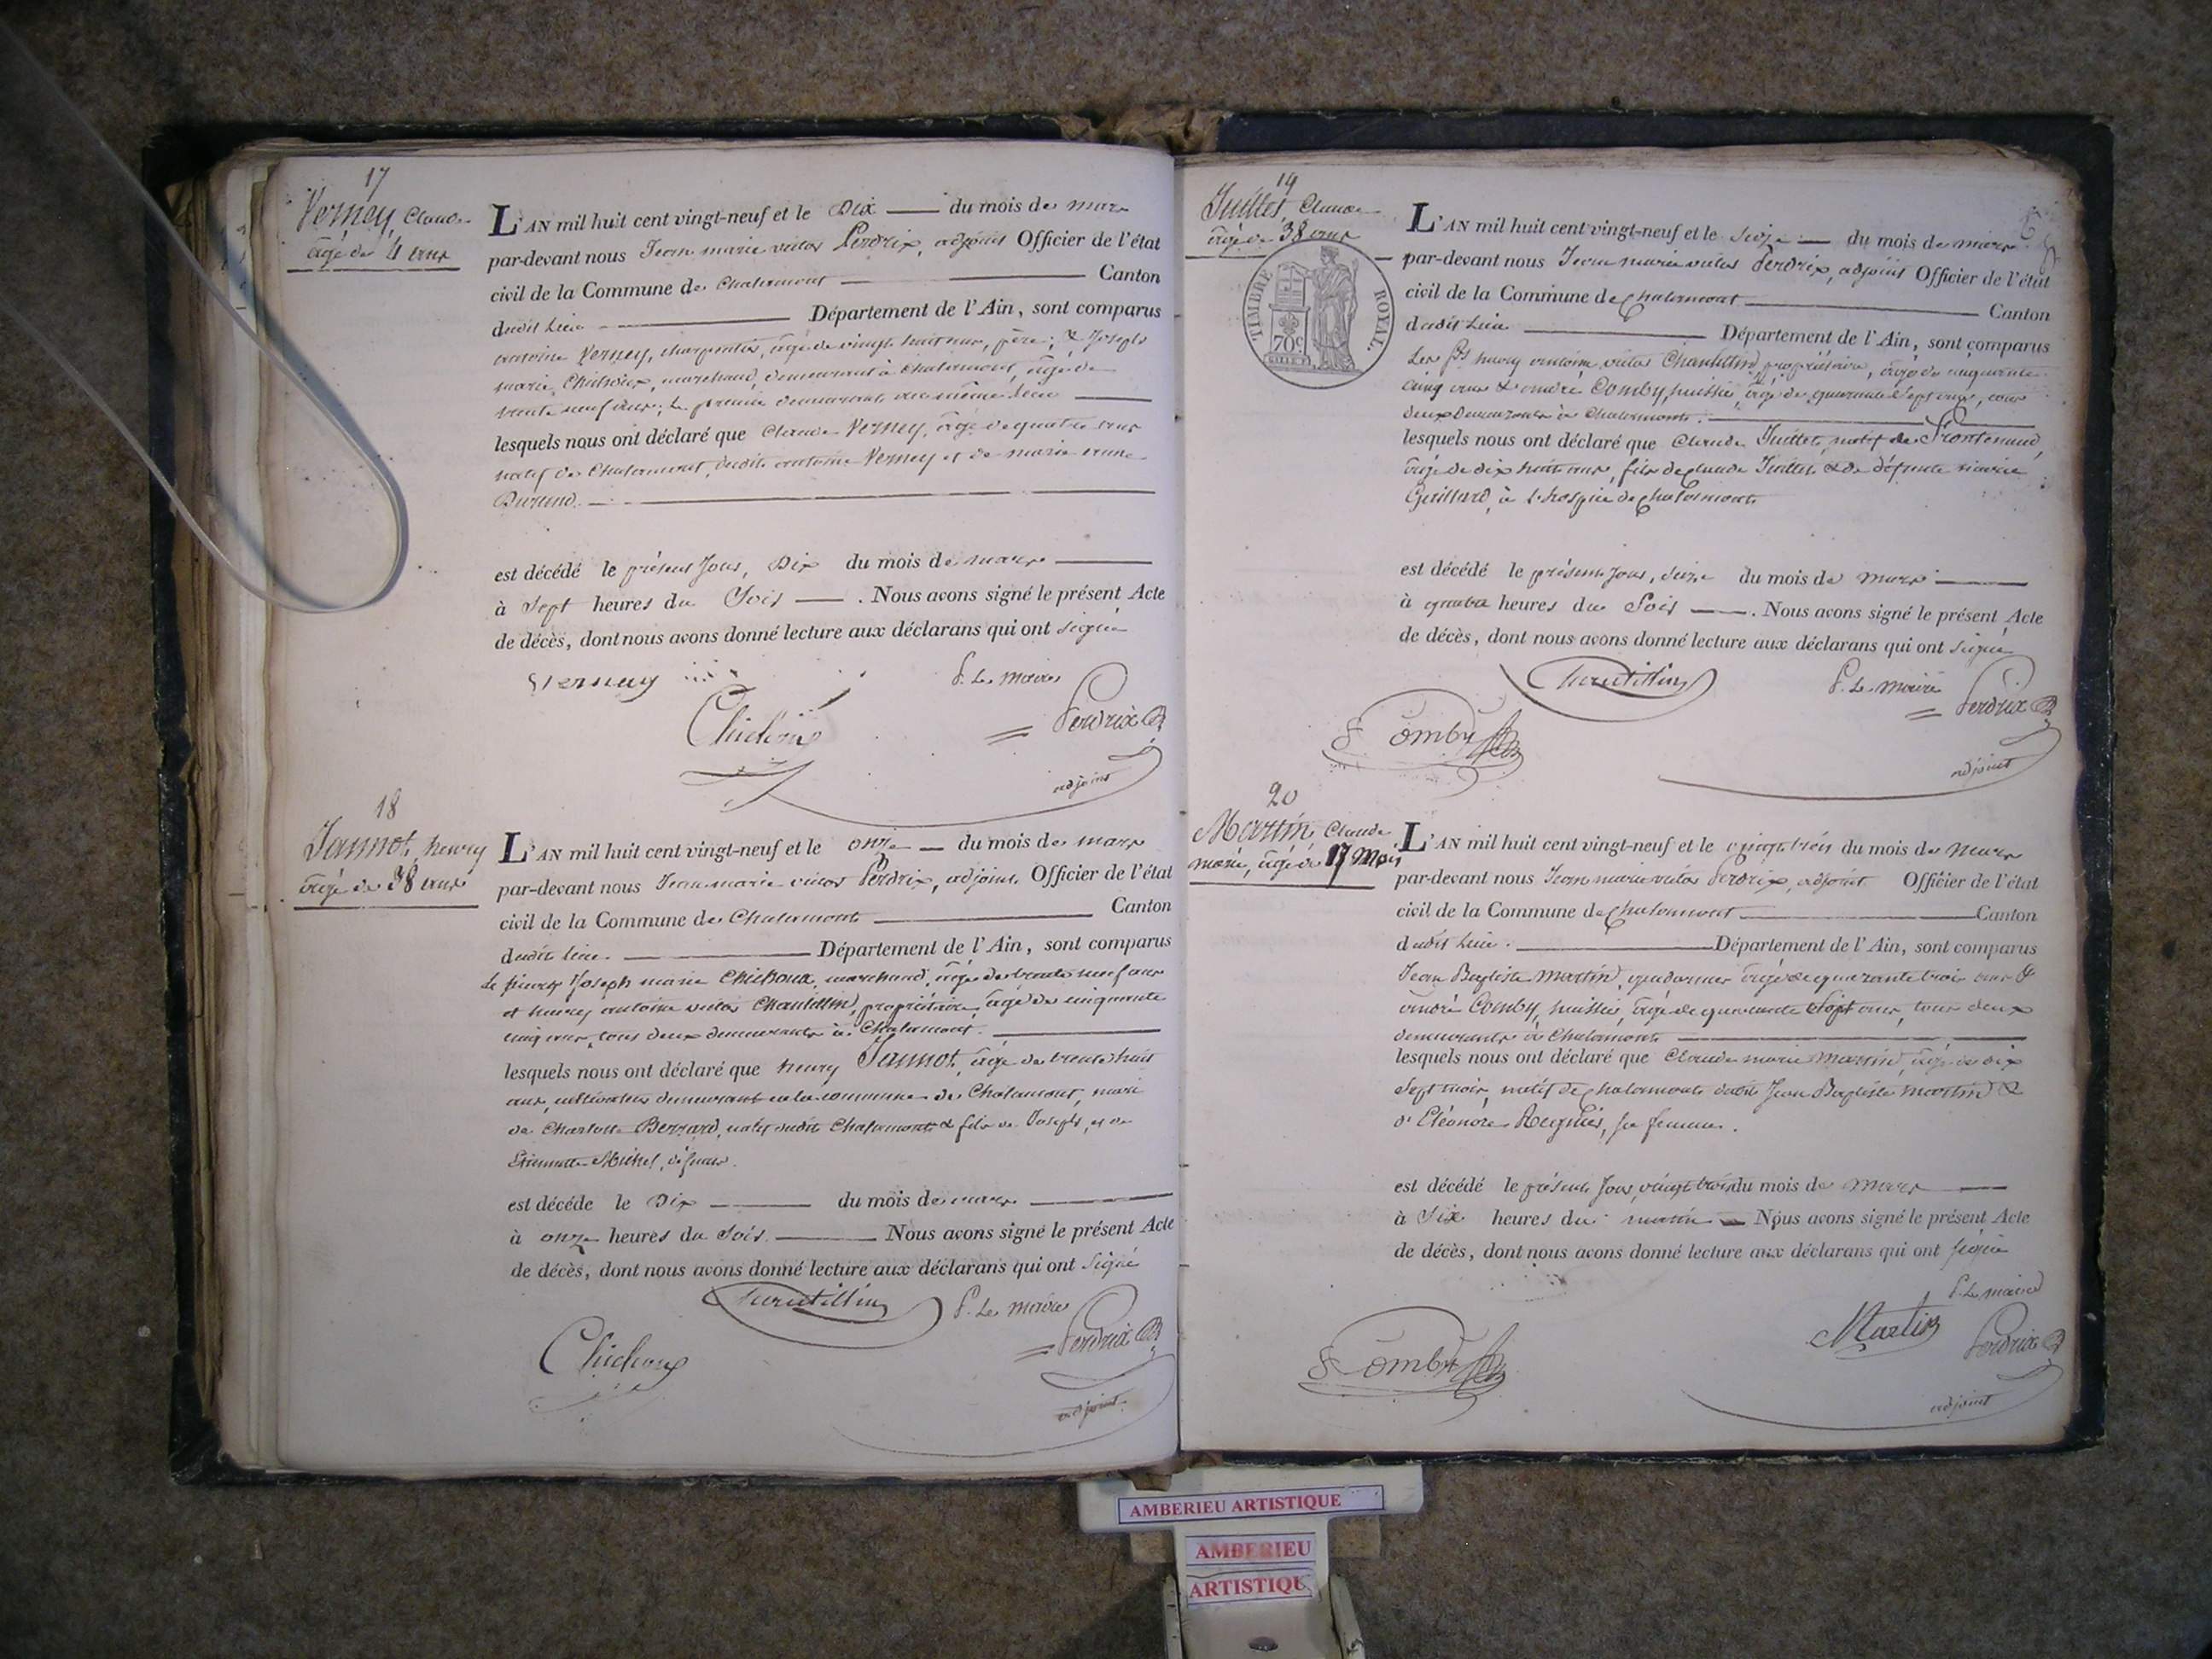 17
Verney, Claude
âgé de 4 ans
L'AN mil huit cent vingt-neuf et le Dix du mois de mars
par-devant nous Jean marie victor Perdrix, adjoint Officier de l'état
civil de la Commune de Chalamont Canton
dudit Lieu Département de l'Ain, sont comparus
antoine Verney, charpentier, âgé de vingt huit ans, père, & Joseph
marie Chichoux, marchand, demeurant à Chalamont, âgé de
trente neuf ans; le premier demeurant au même lieu
lesquels nous ont déclaré que Claude Verney, âgé de quatre ans
natif de Chalamont, dudit antoine Verney et de marie anne
Durand.
est décédé le présent Jour, Dix du mois de mars
à Sept heures du Soir. Nous avons signé le présent Acte
de décès, dont nous avons donné lecture aux déclarans qui ont signé
Vernay
P. Le maire
Chichoux
Perdrix
adjoint
18
Jannot, henry
âgé de 38 ans
L'AN mil huit cent vingt-neuf et le onze du mois de mars
par-devant nous Jean marie victor Perdrix, adjoint Officier de l'état
civil de la Commune de Chalamont Canton
dudit lieu. Département de l'Ain, sont comparus
Le sieurs Joseph marie Chichoux, marchand, âgé de trente neuf ans
et henry antoine victor Chantillin, propriétaire, âgé de cinquante
cinq ans, tous deux demeurants à Chalamont.
lesquels nous ont déclaré que henry Jannot, âgé de trente huit
ans, cultivateur demeurant en la commune de Chalamont, mari
de Charlotte Berrard, natif dudit Chalamont & fils de Joseph, et de
Etiennette Michel, défunts.
est décédé le Dix du mois de mars
à onze heures du Soir. Nous avons signé le présent Acte
de décès, dont nous avons donné lecture aux déclarans qui ont Signé
Chantillin
P. Le maire
Chichoux
Perdrix
adjoint
19
Juillet, Claude
âgé de 38 ans
TIMBRE ROYAL.
70c
L'AN mil huit cent vingt-neuf et le seize du mois de mars
par-devant nous Jean marie victor Perdrix, adjoint Officier de l'état
civil de la Commune de Chalamont Canton
dudit Lieu Département de l'Ain, sont comparus
Les Srs henry antoine victor Chantillin, propriétaire, âgé de cinquante
cinq ans & andré Comby, huissier, âgé de quarante Sept ans, tous
deux demeurants à Chalamont.
lesquels nous ont déclaré que Claude Juillet, natif de Frontenaud,
âgé de dix huit ans, fils de Claude Juillet & de défunte marie
Guillard, à l'hospice de Chalamont
est décédé le présent Jour, seize du mois de mars
à quatre heures du Soir. Nous avons signé le présent Acte
de décès, dont nous avons donné lecture aux déclarans qui ont signé
Chantillin
P. Le maire
Comby
Perdrix
adjoint
20
Martin, Claude
marie, âgé de 17 Mois
L'AN mil huit cent vingt-neuf et le vingt trois du mois de mars
par-devant nous Jean marie victor Perdrix, adjoint Officier de l'état
civil de la Commune de Chalamont Canton
dudit Lieu. Département de l'Ain, sont comparus
Jean Baptiste Martin, gendarme âgé de quarante trois ans &
andré Comby, huissier, âgé de quarante Sept ans, tous deux
demeurants à Chalamont
lesquels nous ont déclaré que Claude marie Martin, âgé de dix
Sept mois, natif de Chalamont dudit Jean Baptiste Martin &
d'Eléonore Reynier, sa femme.
est décédé le présent Jour, vingt trois du mois de mars
à Six heures du matin Nous avons signé le présent Acte
de décès, dont nous avons donné lecture aux déclarans qui ont signé
P. Le maire
Martin
Comby
Perdrix
adjoint
AMBERIEU ARTISTIQUE
AMBERIEU
ARTISTIQU